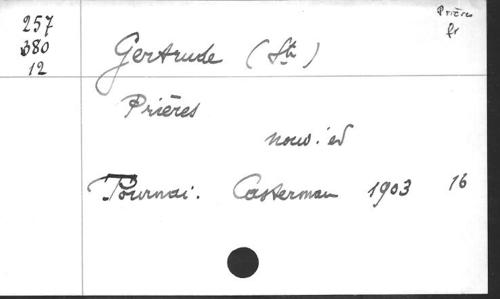 257
B80
12
Prières
fr
Gertrude (Ste)
Prières
nouv. ed
Tournai. Casterman 1903 16